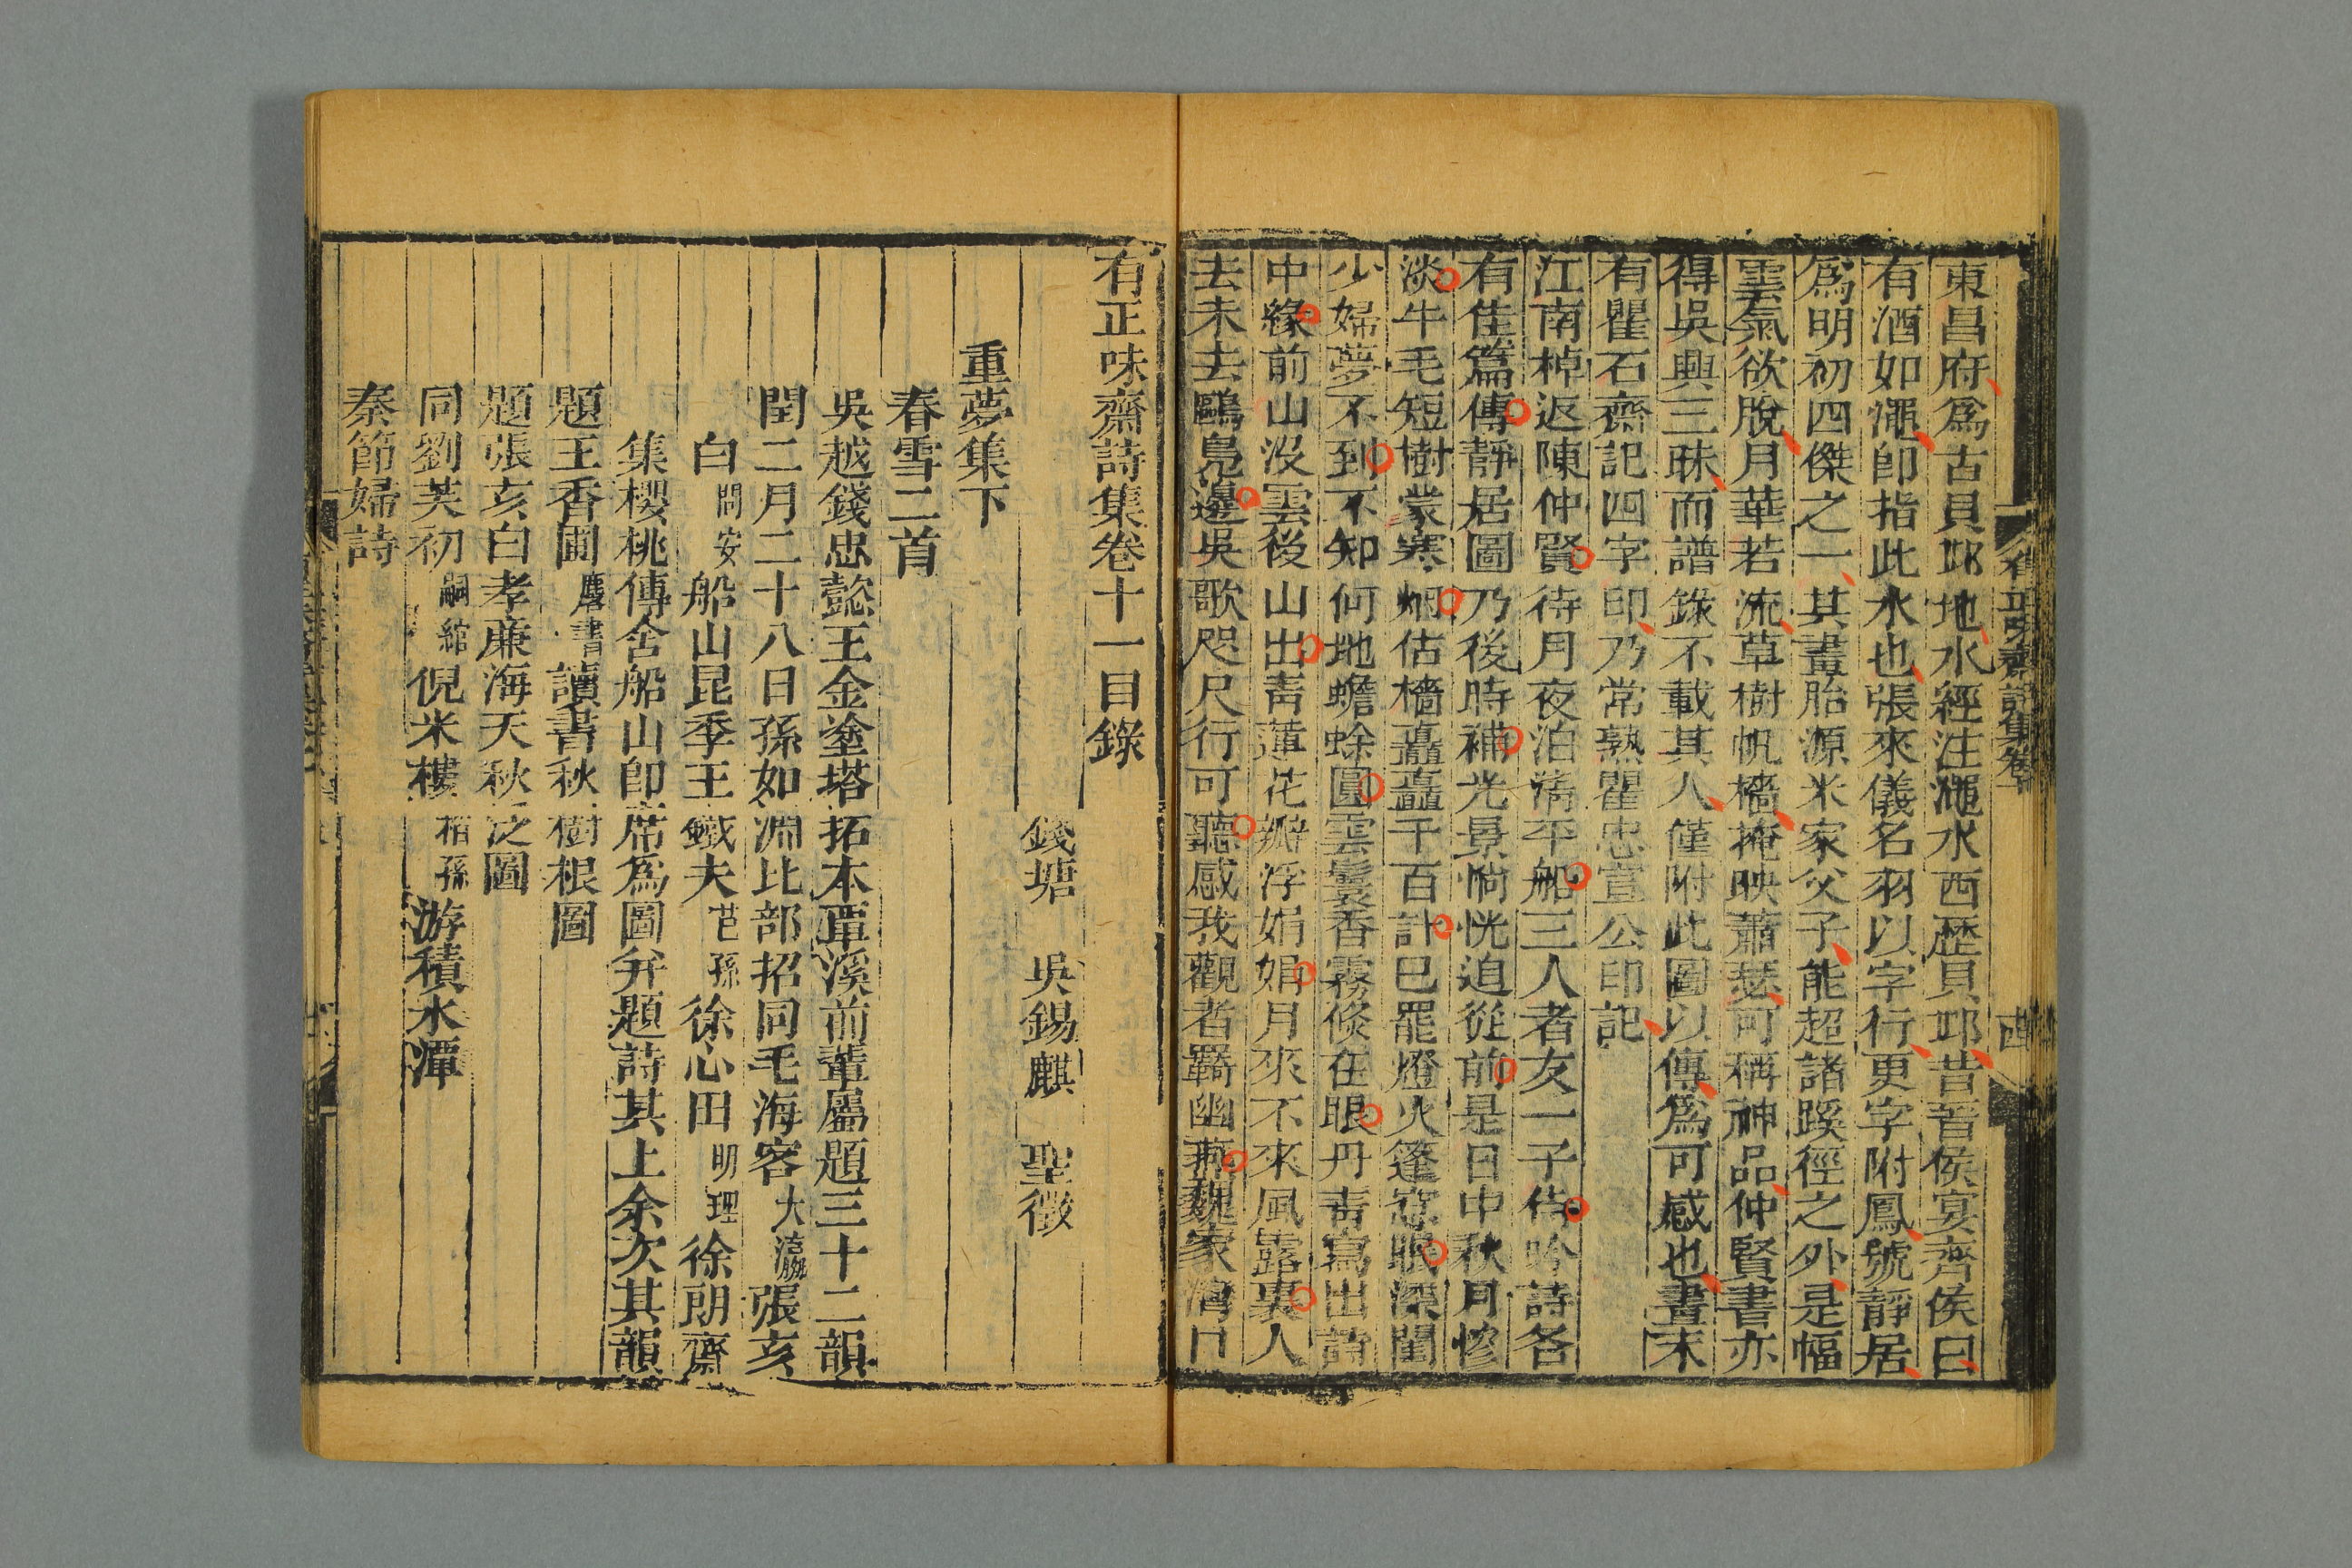 東昌府爲古貝邱地水經注澠水西歷貝邱昔晉侯宴齊侯曰
有酒如澠卽指此水也張來儀名羽以字行更字附鳳號靜居
爲明初四傑之一其畫胎源米家父子能超諸蹊徑之外是幅
雲氣欲脫月華若流草樹帆檣掩映蕭瑟可稱神品仲賢書亦
得吳興三昧而譜錄不載其人僅附此圖以傳爲可感也畫末
有瞿石齋記四字印乃常熟瞿忠宣公印記
江南棹返陳仲賢待月夜泊淸平船三人者友一子侍吟詩各
有佳篇傳靜居圖乃後時補光景惝恍追從前是日中秋月慘
淡牛毛短樹蒙寒烟估檣矗矗千百計巳罷燈火篷窓眠深閨
少婦夢不到不知何地蟾蜍圓雲鬟香霧倐在眼丹靑寫出詩
中緣前山沒雲後山出靑蓮花瓣浮娟娟月來不來風露裏人
去未去鷗鳧邊吳歌咫尺行可聽感我觀者羇幽燕魏家灣口
有正味齋詩集卷十
有正味齋詩集卷十一目錄
錢塘 吳錫麒 聖徵
重夢集下
春雪二首
吳越錢忠懿王金塗塔拓本覃溪前輩屬題三十二韻
閏二月二十八日孫如淵比部招同毛海客大瀛張亥
白問安船山昆季王鐵夫芑孫徐心田明理徐朗齋
集櫻桃傳舍船山卽席爲圖幷題詩其上余次其韻
題王香圃麈書讀書秋樹根圖
題張亥白孝廉海天秋泛圖
同劉芙初嗣綰倪米樓稻孫游積水潭
秦節婦詩